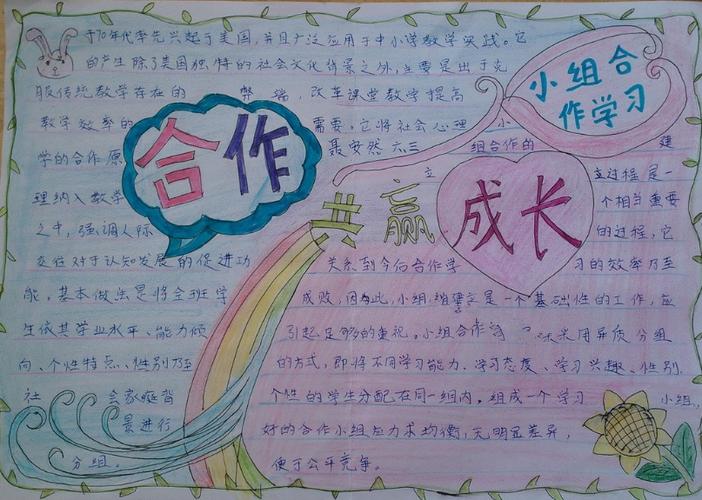 小组合
作学习
合作
共赢
成长
于70年代率先兴起于美国,并且广泛应用于中小学教学实践。它
的产生除了美国独特的社会文化背景之外,主要是出于克
服传统教学存在的 弊端,改革课堂教学提高
教学效率的 需要。它将社会心理
学的合作原
理纳入教学
之中,强调人际
交往对于认知发展的促进功
能。基本做法是将全班学
生依其学业水平、能力倾
向、个性特点、性别乃至
社 会家庭背
景进行
分组。
聂安然 六三
小
组合作的 建
立 立过程是一
个相当重要
的过程,它
关系到今后合作学 习的效率乃至
成败,因为此,小组组 立是一个基础性的工作,应
引起足够的重视。小组合作 采用异质分组
的方式,即将不同学习能力、学习态度、学习兴趣、性别、
个性的学生分配在同一组内,组成一个学习 小组,
好的合作小组应力求均衡,无明显差异,
便于公平竞争。